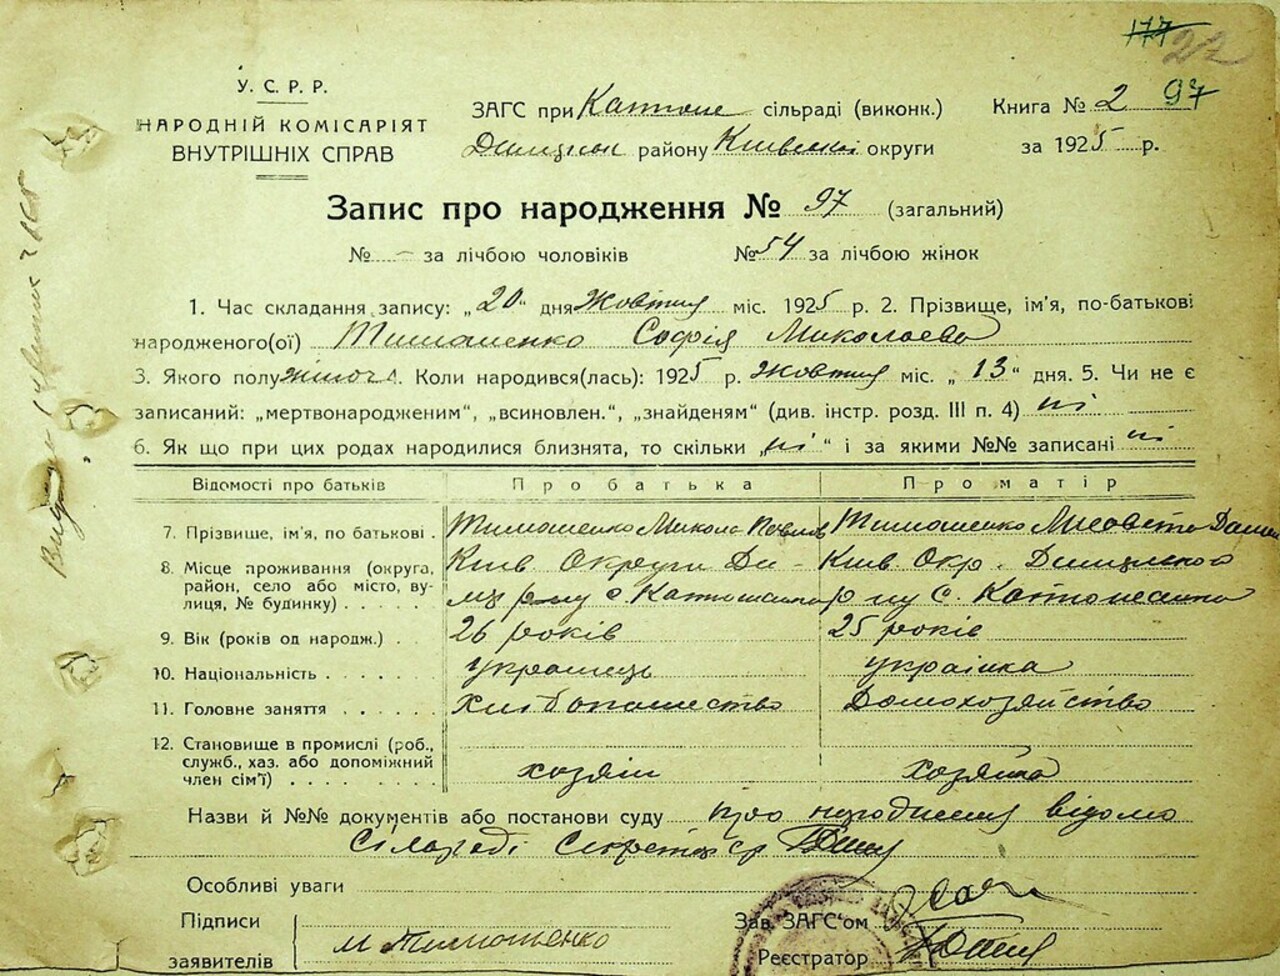 177 22
У. С. Р. Р.
НАРОДНІЙ КОМІСАРІЯТ
ВНУТРІШНІХ СПРАВ
ЗАГС при сільраді (виконк.)
району Київської округи
Книга № 2 97
за 1925 р.
Запис про народження № 97 (загальний)
№ – за лічбою чоловіків №54 за лічбою жінок
1. Час складання запису: „20“ дня Жовтня міс. 1925 р. 2. Прізвище, ім'я, по-батькові
народженого(ої) Тимошенко Софія Миколаева
3. Якого полу жіноч 4. Коли народився(лась): 1925 р. Жовтня міс. „13“ дня. 5. Чи не є
записаний: „мертвонародженим“, „всиновлен.“, „знайденям“ (див. інстр. розд. III п. 4) ні
6. Як що при цих родах народилися близнята, то скільки „ні“ і за якими №№ записані ні
Відомості про батьків Про батька Про матір
7. Прізвище, ім'я, по батькові . Тимошенко Микола Павлов Тимошенко Лисовета
8. Місце проживання (округа, Київ. Округи Ди- Київ. Окр.
район, село або місто, ву-
лиця, № будинку) . . . . . с. с.
9. Вік (років од народж.) . 26 років 25 років
10. Національність . . . . . . украінець украінка
11. Головне заняття . . . . . Хлібопашество Домохозяйство
12. Становище в промислі (роб.,
служб., хаз. або допоміжний
член сім'ї) . . . . . . . . хозяін хозяйка
Назви й №№ документів або постанови суду про народження відомо
Сільраді Секретар
Особливі уваги
Підписи
заявителів М Тимошенко
Зав. ЗАГС'ом
Реєстратор